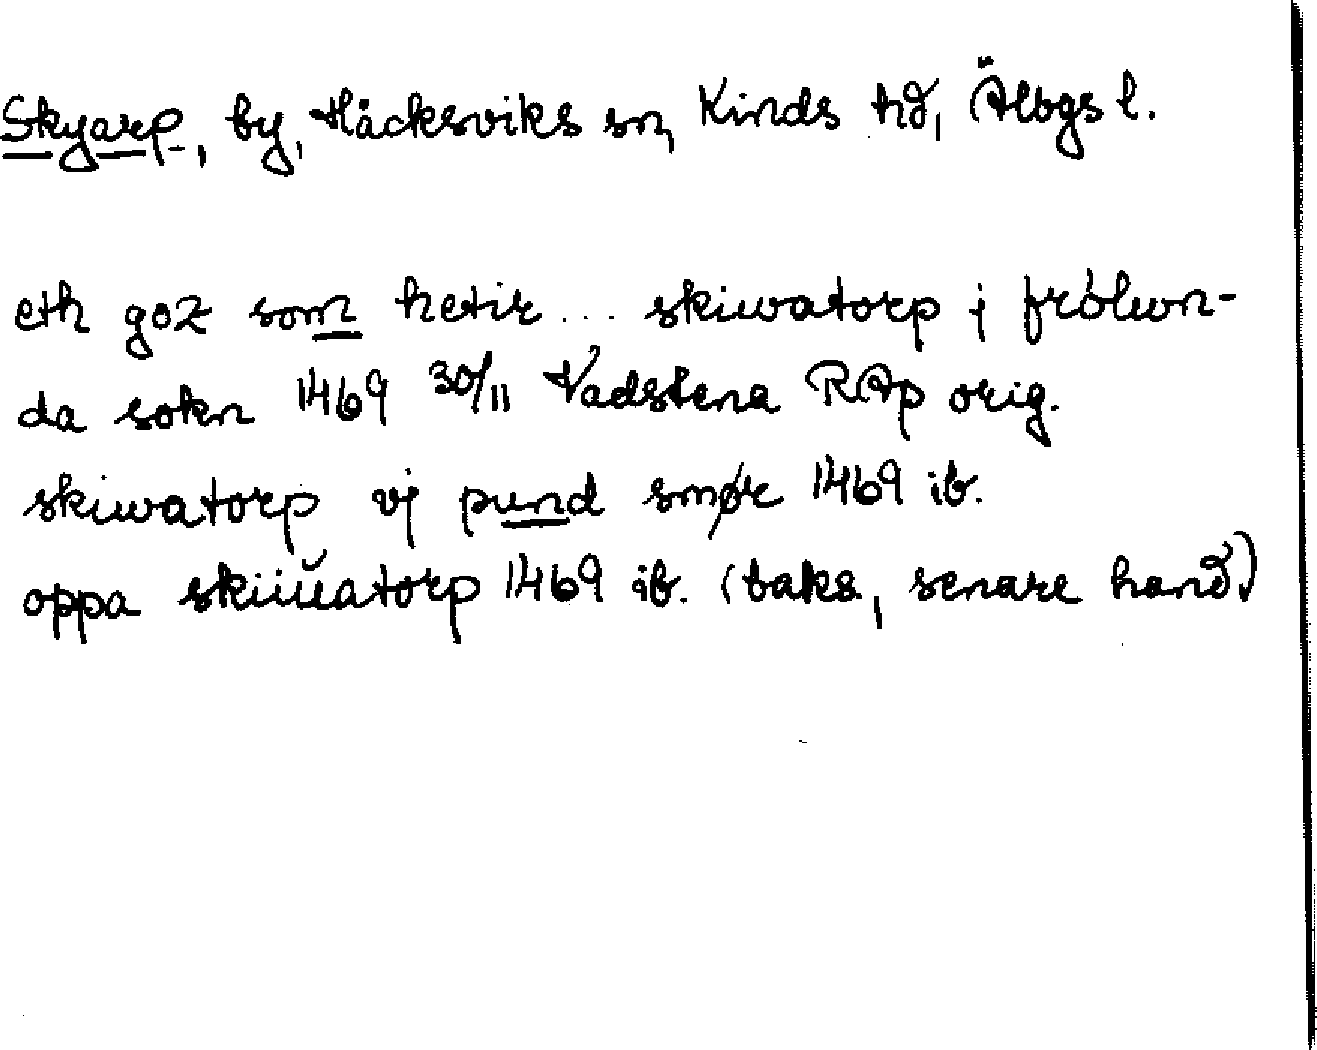 Skyarp, by, Håcksviks sn, Kinds hd, Älvbgs l.
eth goz som hetir... skiwatorp j frölwn-
da sokn 1469 30/11 Vadstena RAp orig.
skiwatorp vj pund smør 1469 ib.
oppa skiiŭatorp 1469 ib. (baks., senare hand.)